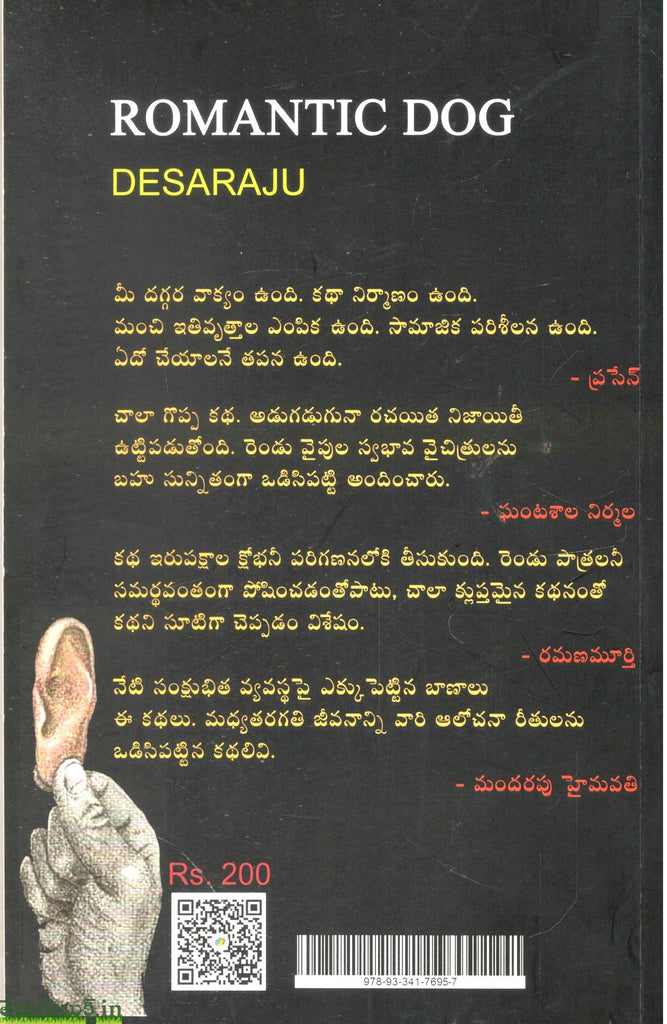 ROMANTIC DOG
DESARAJU
మీ దగ్గర వాక్యం ఉంది. కథా నిర్మాణం ఉంది.
మంచి ఇతివృత్తాల ఎంపిక ఉంది. సామాజిక పరిశీలన ఉంది.
ఏదో చేయాలనే తపన ఉంది.
- ప్రసేన్
చాలా గొప్ప కథ. అడుగడుగునా రచయిత నిజాయితీ
ఉట్టిపడుతోంది. రెండు వైపుల స్వభావ వైచిత్రులను
బహు సున్నితంగా ఒడిసిపట్టి అందించారు.
- ఘంటశాల నిర్మల
కథ ఇరుపక్షాల క్షోభనీ పరిగణనలోకి తీసుకుంది. రెండు పాత్రలనీ
సమర్థవంతంగా పోషించడంతోపాటు, చాలా క్లుప్తమైన కథనంతో
కథని సూటిగా చెప్పడం విశేషం.
- రమణమూర్తి
నేటి సంక్షుభిత వ్యవస్థపై ఎక్కుపెట్టిన బాణాలు
ఈ కథలు. మధ్యతరగతి జీవనాన్ని వారి ఆలోచనా రీతులను
ఒడిసిపట్టిన కథలివి.
- మందరపు హైమవతి
Rs. 200
978-93-341-7695-7